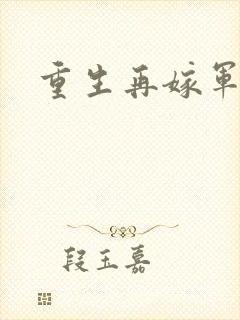 重生再嫁军
段玉嘉